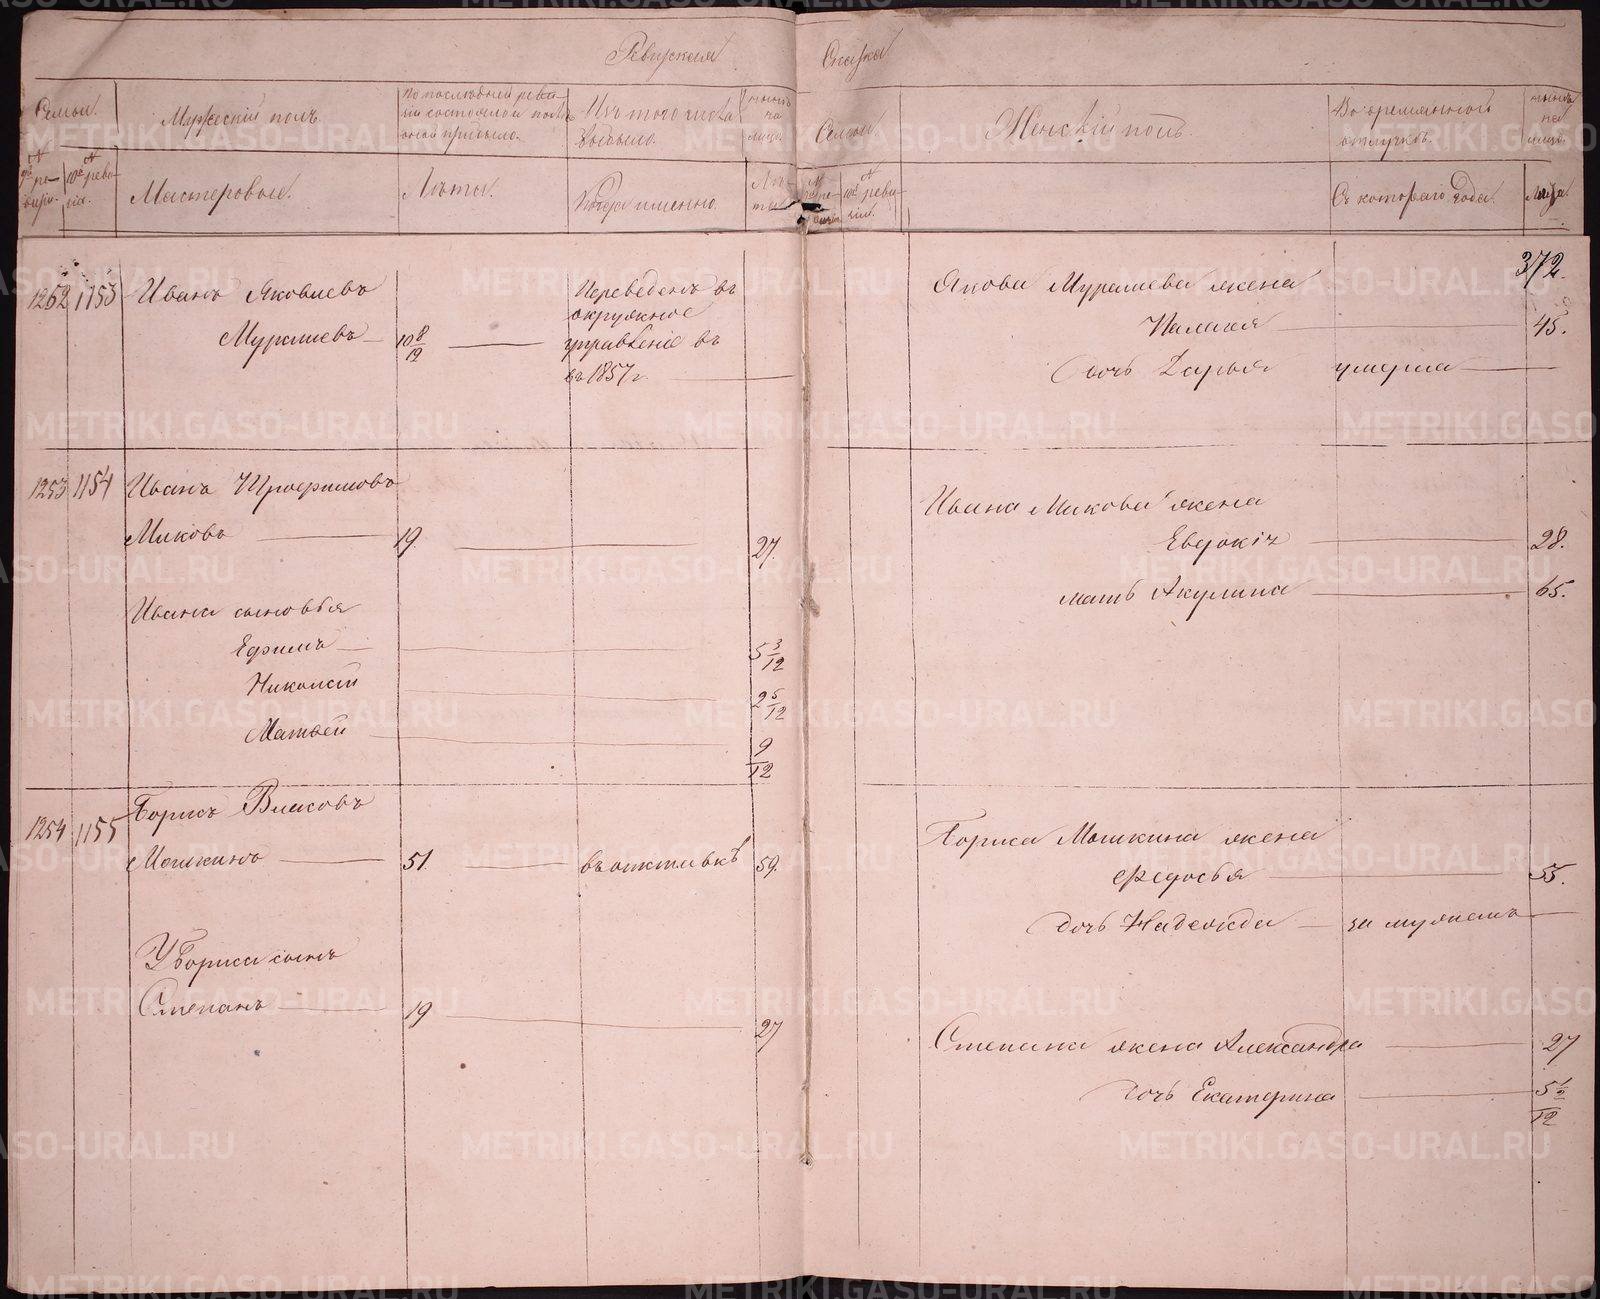 Ревизская Сказка
Семьи.
Мужескій полъ.
По последней реви-
зіи состояло и пос-
оной прибыло.
Изъ того числа
выбыло.
нынѣ
на
лицо.
№
9й ре-
визіи.
№
10й реви-
зіи.
Мастеровые.
Лѣта.
Когда именно.
Лѣ-
та
Семьи.
Женскій полъ.
Во временной
отлучкѣ.
нынѣ
на
лицо.
10й реви-
зіи.
Съ котораго года.
Лѣта.
372.
1252 1153 Иванъ Яковлевъ
Мурашевъ 10 8/12
Переведенъ въ
окружное
управленіе въ
въ 1857 г.
Якова Мурашева жена
45.
дочь Дарья умерла
1253 1154 Иванъ Трофимовъ
Миковъ 19. 27.
Ивана сыновья
Ефимъ 5 3/12
Николай 2 5/12
Матвей 9/12
Ивана Микова жена
Евдокія 28.
мать Акулина 65.
1254 1155 Борисъ Власовъ
Мошкинъ 51. въ отставкѣ 59.
У Бориса сынъ
Степанъ 19 27
Бориса Мошкина жена
Федосья 55.
дочь Надежда за мужемъ
Степана жена Александра 27
дочь Екатерина 5 1/2/12
METRIKI.GASO-URAL.RU